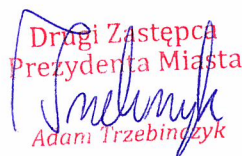 Drugi Zastępca
Prezydenta Miasta
Adam Trzebinczyk